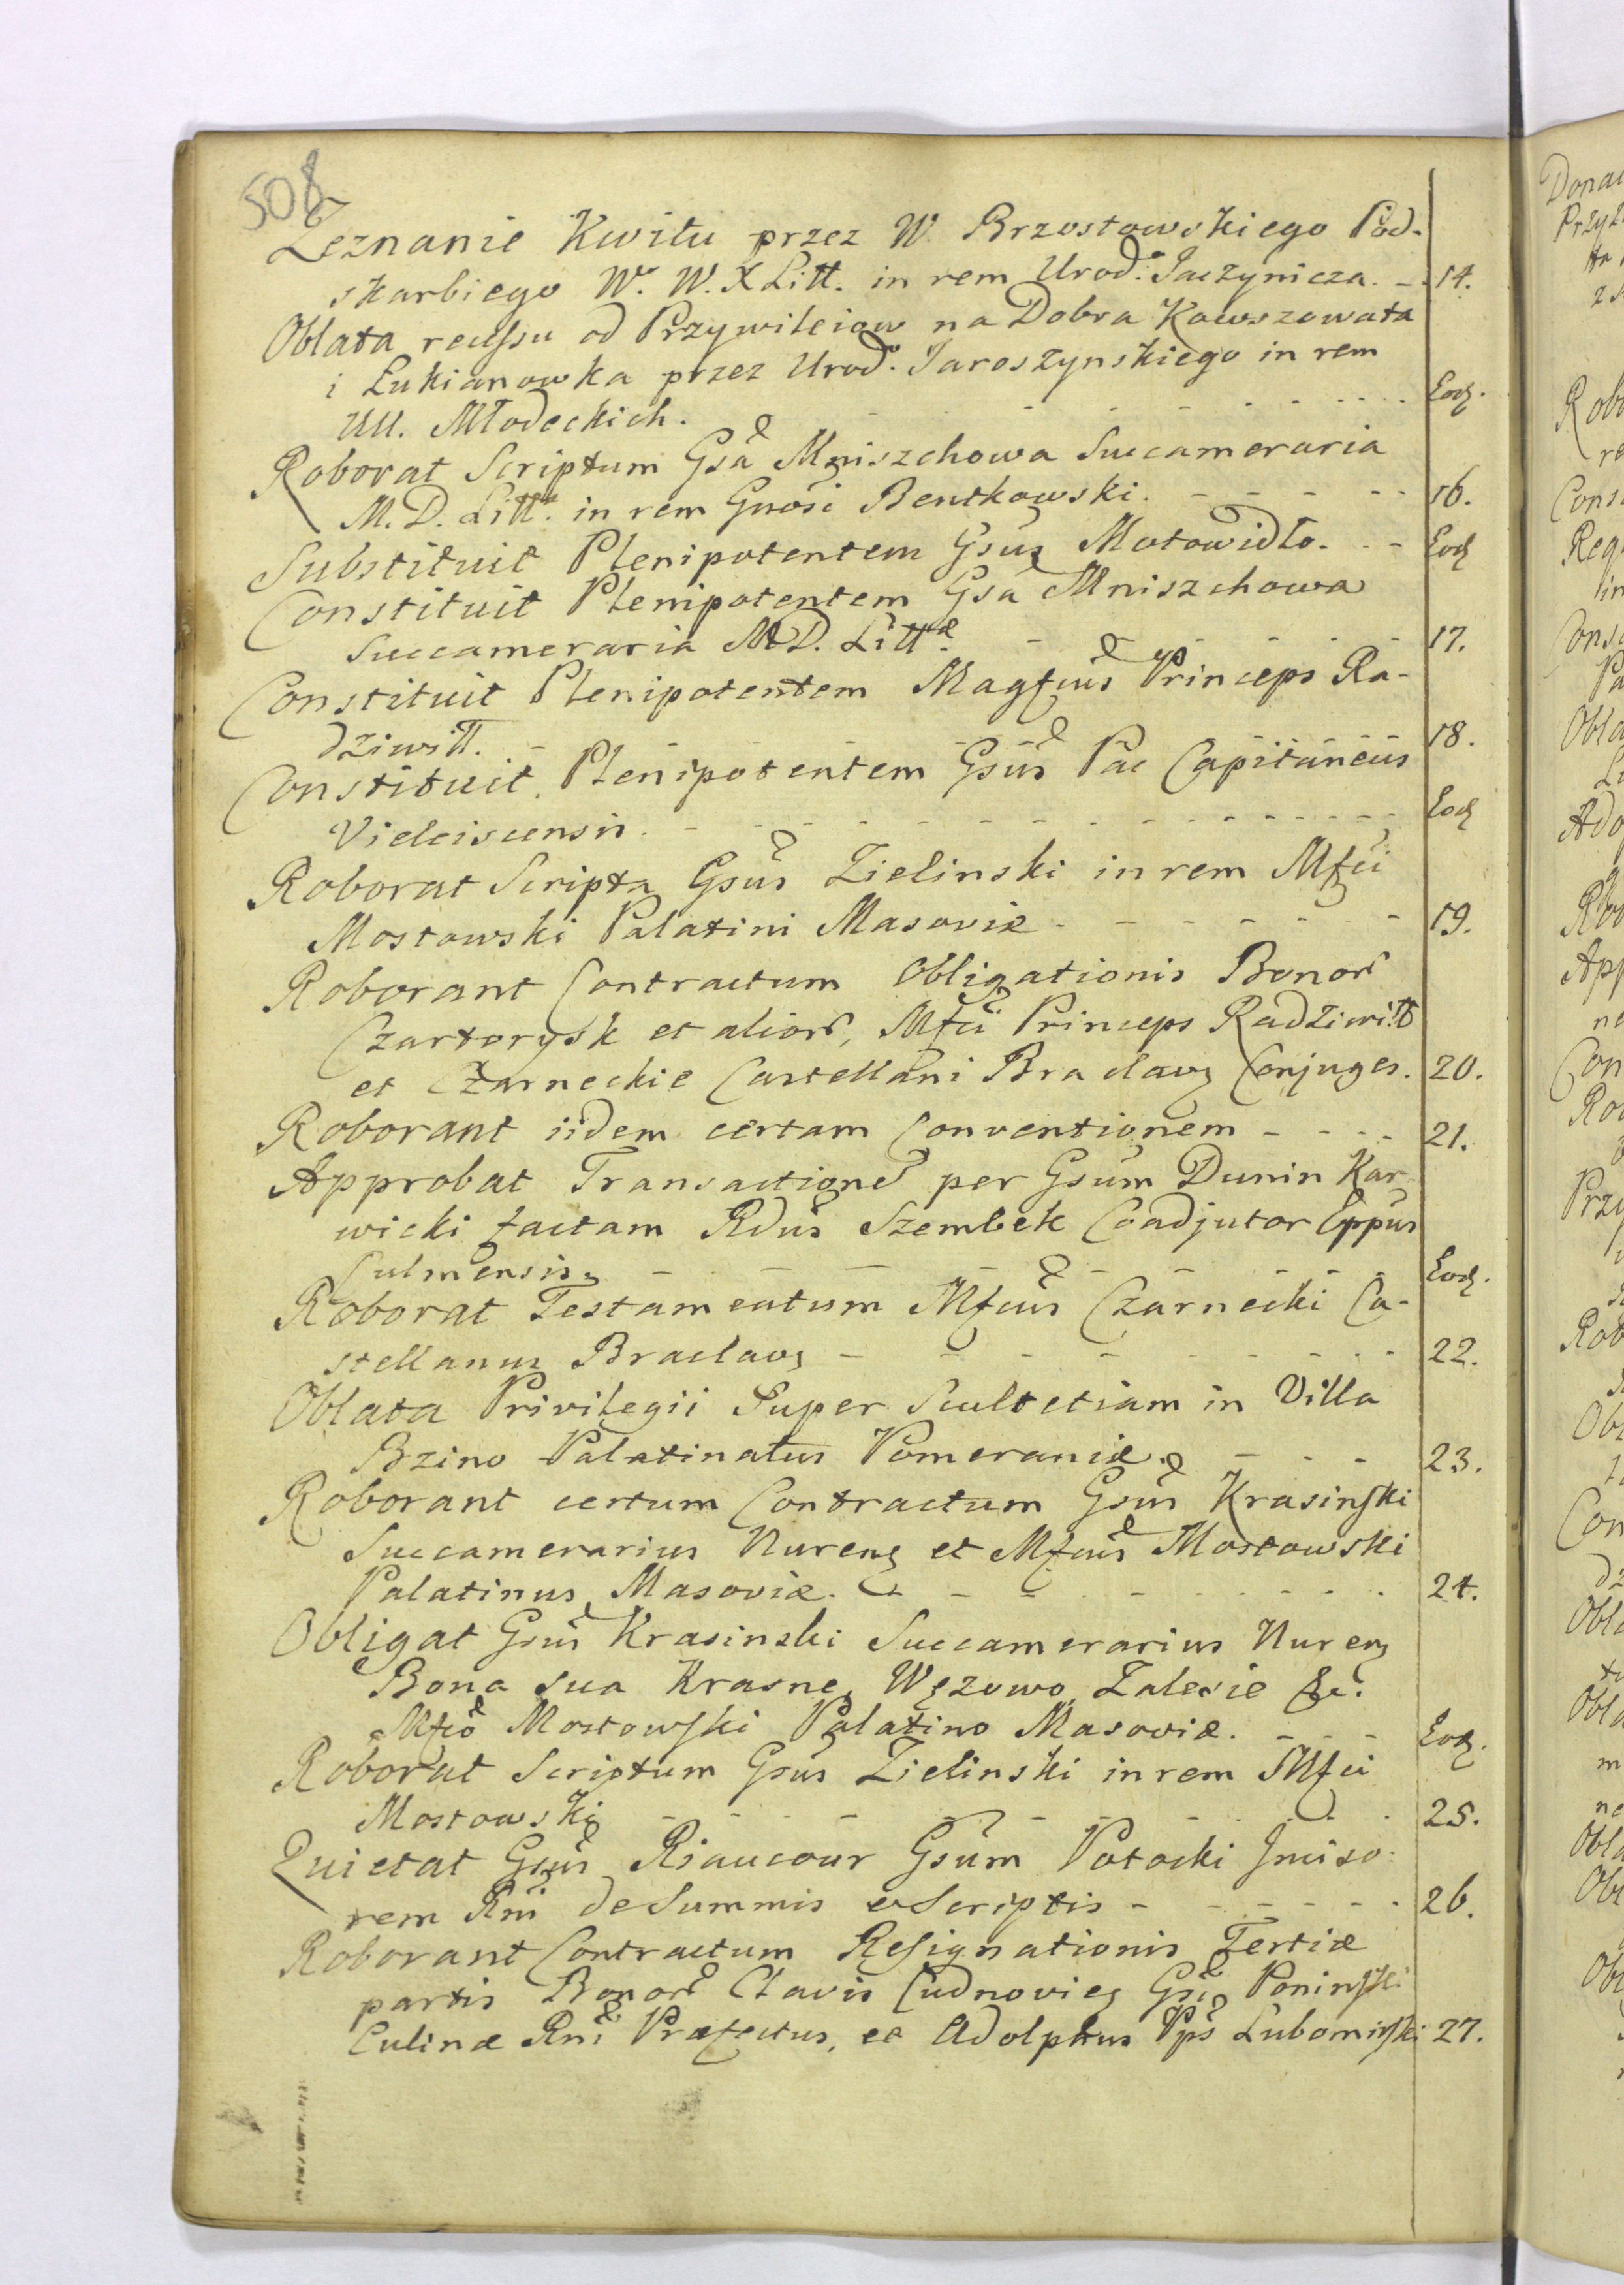 508
Zeznanie Kwitu przez W. Brzostowskiego Pod-
skarbiego W. W. X Litt. in rem Urod. Jaczynicza. - 14.
Oblata recessu od Przywileiow na Dobra Kowszowata
i Łukianowka przez Urod. Jaroszynskiego in rem
UU. Młodeckich. Eod.
Roborat Scriptum Gsa Mniszchowa Succameraria
M. D. Litt. in rem Gnosi Bentkowski. 16.
Substituit Plenipotentem Gsus Motowidło. Eod
Constituit Plenipotentem Gsa Mniszchowa
Succameraria M.D. Litt. 17.
Constituit Plenipotentem Magfcus Princeps Ra-
dziwiłł. 18.
Constituit Plenipotentem Gsus Pac Capitaneus
Vieleiscensis. Eod
Roborat Scripta Gsus Zielinski in rem Mfci
Mostowski Palatini Masoviæ 19.
Roborant Contractum Obligationis Bonor
Czartorysk et alior, Mfci Princeps Radziwiłł
et Czarneckie Castellani Braclav Conjuges. 20.
Roborant iidem certam Conventionem - 21.
Approbat Transactione per Gsum Dunin Kar-
wicki factam Rdus Szembek Coadjutor Eppus
Culmensis Eod.
Roborat Testamentum Mfcus Czarnecki Ca-
stellanus Braclav - 22.
Oblata Privilegii Super Scultetiam in Villa
Bzino Palatinatus Pomeraniæ. 23.
Roborant certum Contractum Gsus Krasinski
Succamerarius Nurens et Mfcus Mostowski
Palatinus Masoviæ. 24.
Obligat Gsus Krasinski Succamerarius Nurens
Bona sua Krasne, Węzowo, Zalesie &c.
Mfco Mostowski Palatino Masoviæ. Eod.
Roborat Scriptum Gsus Zielinski in rem Mfci
Mostowski 25.
Quietat Gsus Riaucour Gsum Potocki Inciso-
rem Rni de Summis e Scriptis - 26.
Roborant Contractum Resignationis Tertiæ
partis Bonor Clavis Cudnovies Gsi Poninski
Culinæ Rni Præfectus, et Adolphus Pps Lubomirski 27.